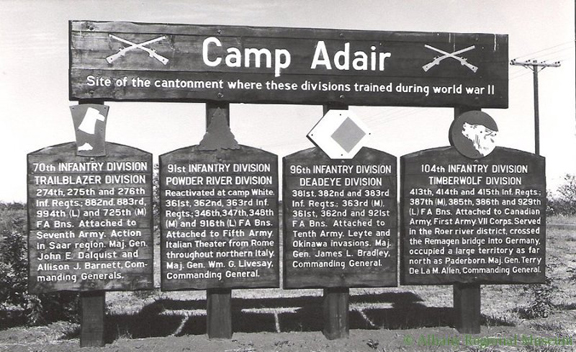 Camp Adair
Site of the cantonment where these divisions trained during world war II
70th INFANTRY DIVISION
TRAILBLAZER DIVISION
274th, 275th and 276th
Inf. Regts.; 882nd, 883rd,
994th (L) and 725th (M)
FA Bns. Attached to
Seventh Army. Action
in Saar region. Maj. Gen.
John E. Dalquist and
Allison J. Barnett, Com-
manding Generals.
91st INFANTRY DIVISION
POWDER RIVER DIVISION
Reactivated at camp White.
361st, 362nd, 363rd Inf.
Regts.; 346th, 347th, 348th
and 916th (L) FA Bns.
Attached to Fifth Army
Italian Theater from Rome
throughout northern Italy.
Maj. Gen. Wm. G. Livesay,
Commanding General.
96th INFANTRY DIVISION
DEADEYE DIVISION
381st, 382nd and 383rd
Inf. Regts.; 363rd (M),
361st, 362nd and 921st
FA Bns. Attached to
Tenth Army. Leyte and
Okinawa invasions. Maj.
Gen. James L. Bradley,
Commanding General.
104th INFANTRY DIVISION
TIMBERWOLF DIVISION
413th, 414th and 415th Inf. Regts.;
387th (M), 385th, 386th and 929th
(L) FA Bns. Attached to Canadian
Army, First Army, VII Corps. Served
in the Roer river district, crossed
the Remagen bridge into Germany,
occupied a large territory as far
north as Paderborn. Maj. Gen. Terry
De La M. Allen, Commanding General.
© Albany Regional Museum